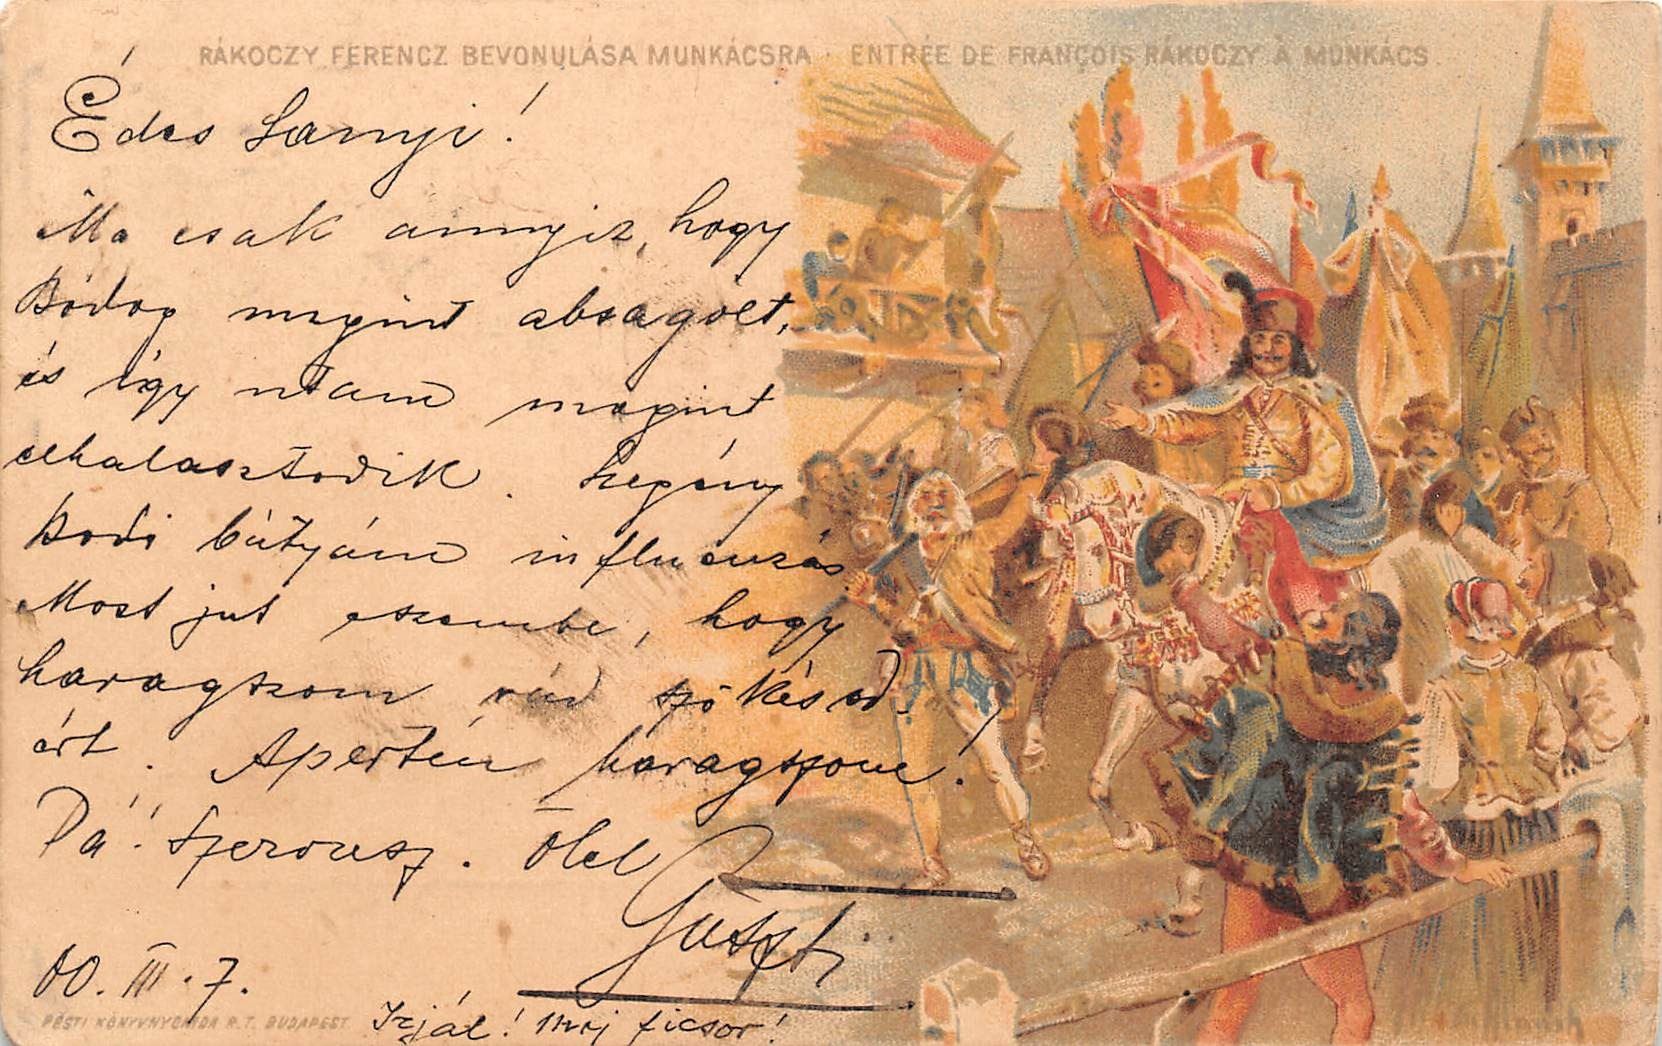 RÁKOCZY FERENCZ BEVONULÁSA MUNKÁCSRA · ENTRÉE DE FRANÇOIS RÁKOCZY À MUNKÁCS.
Édes Lanyi!
Ma csak annyit, hogy
Bódog megint absagolt,
és így utam megint
elhalasztodik. Szegény
Bodi bátyám influenzás
Most jut eszembe, hogy
haragszom rád szökésed
ért. Aperten haragszom!
Pá! Szervusz. Ölel
Guszti
00. III. 7.
PESTI KÖNYVNYOMDA R. T. BUDAPEST.
Irjál! ficsor!